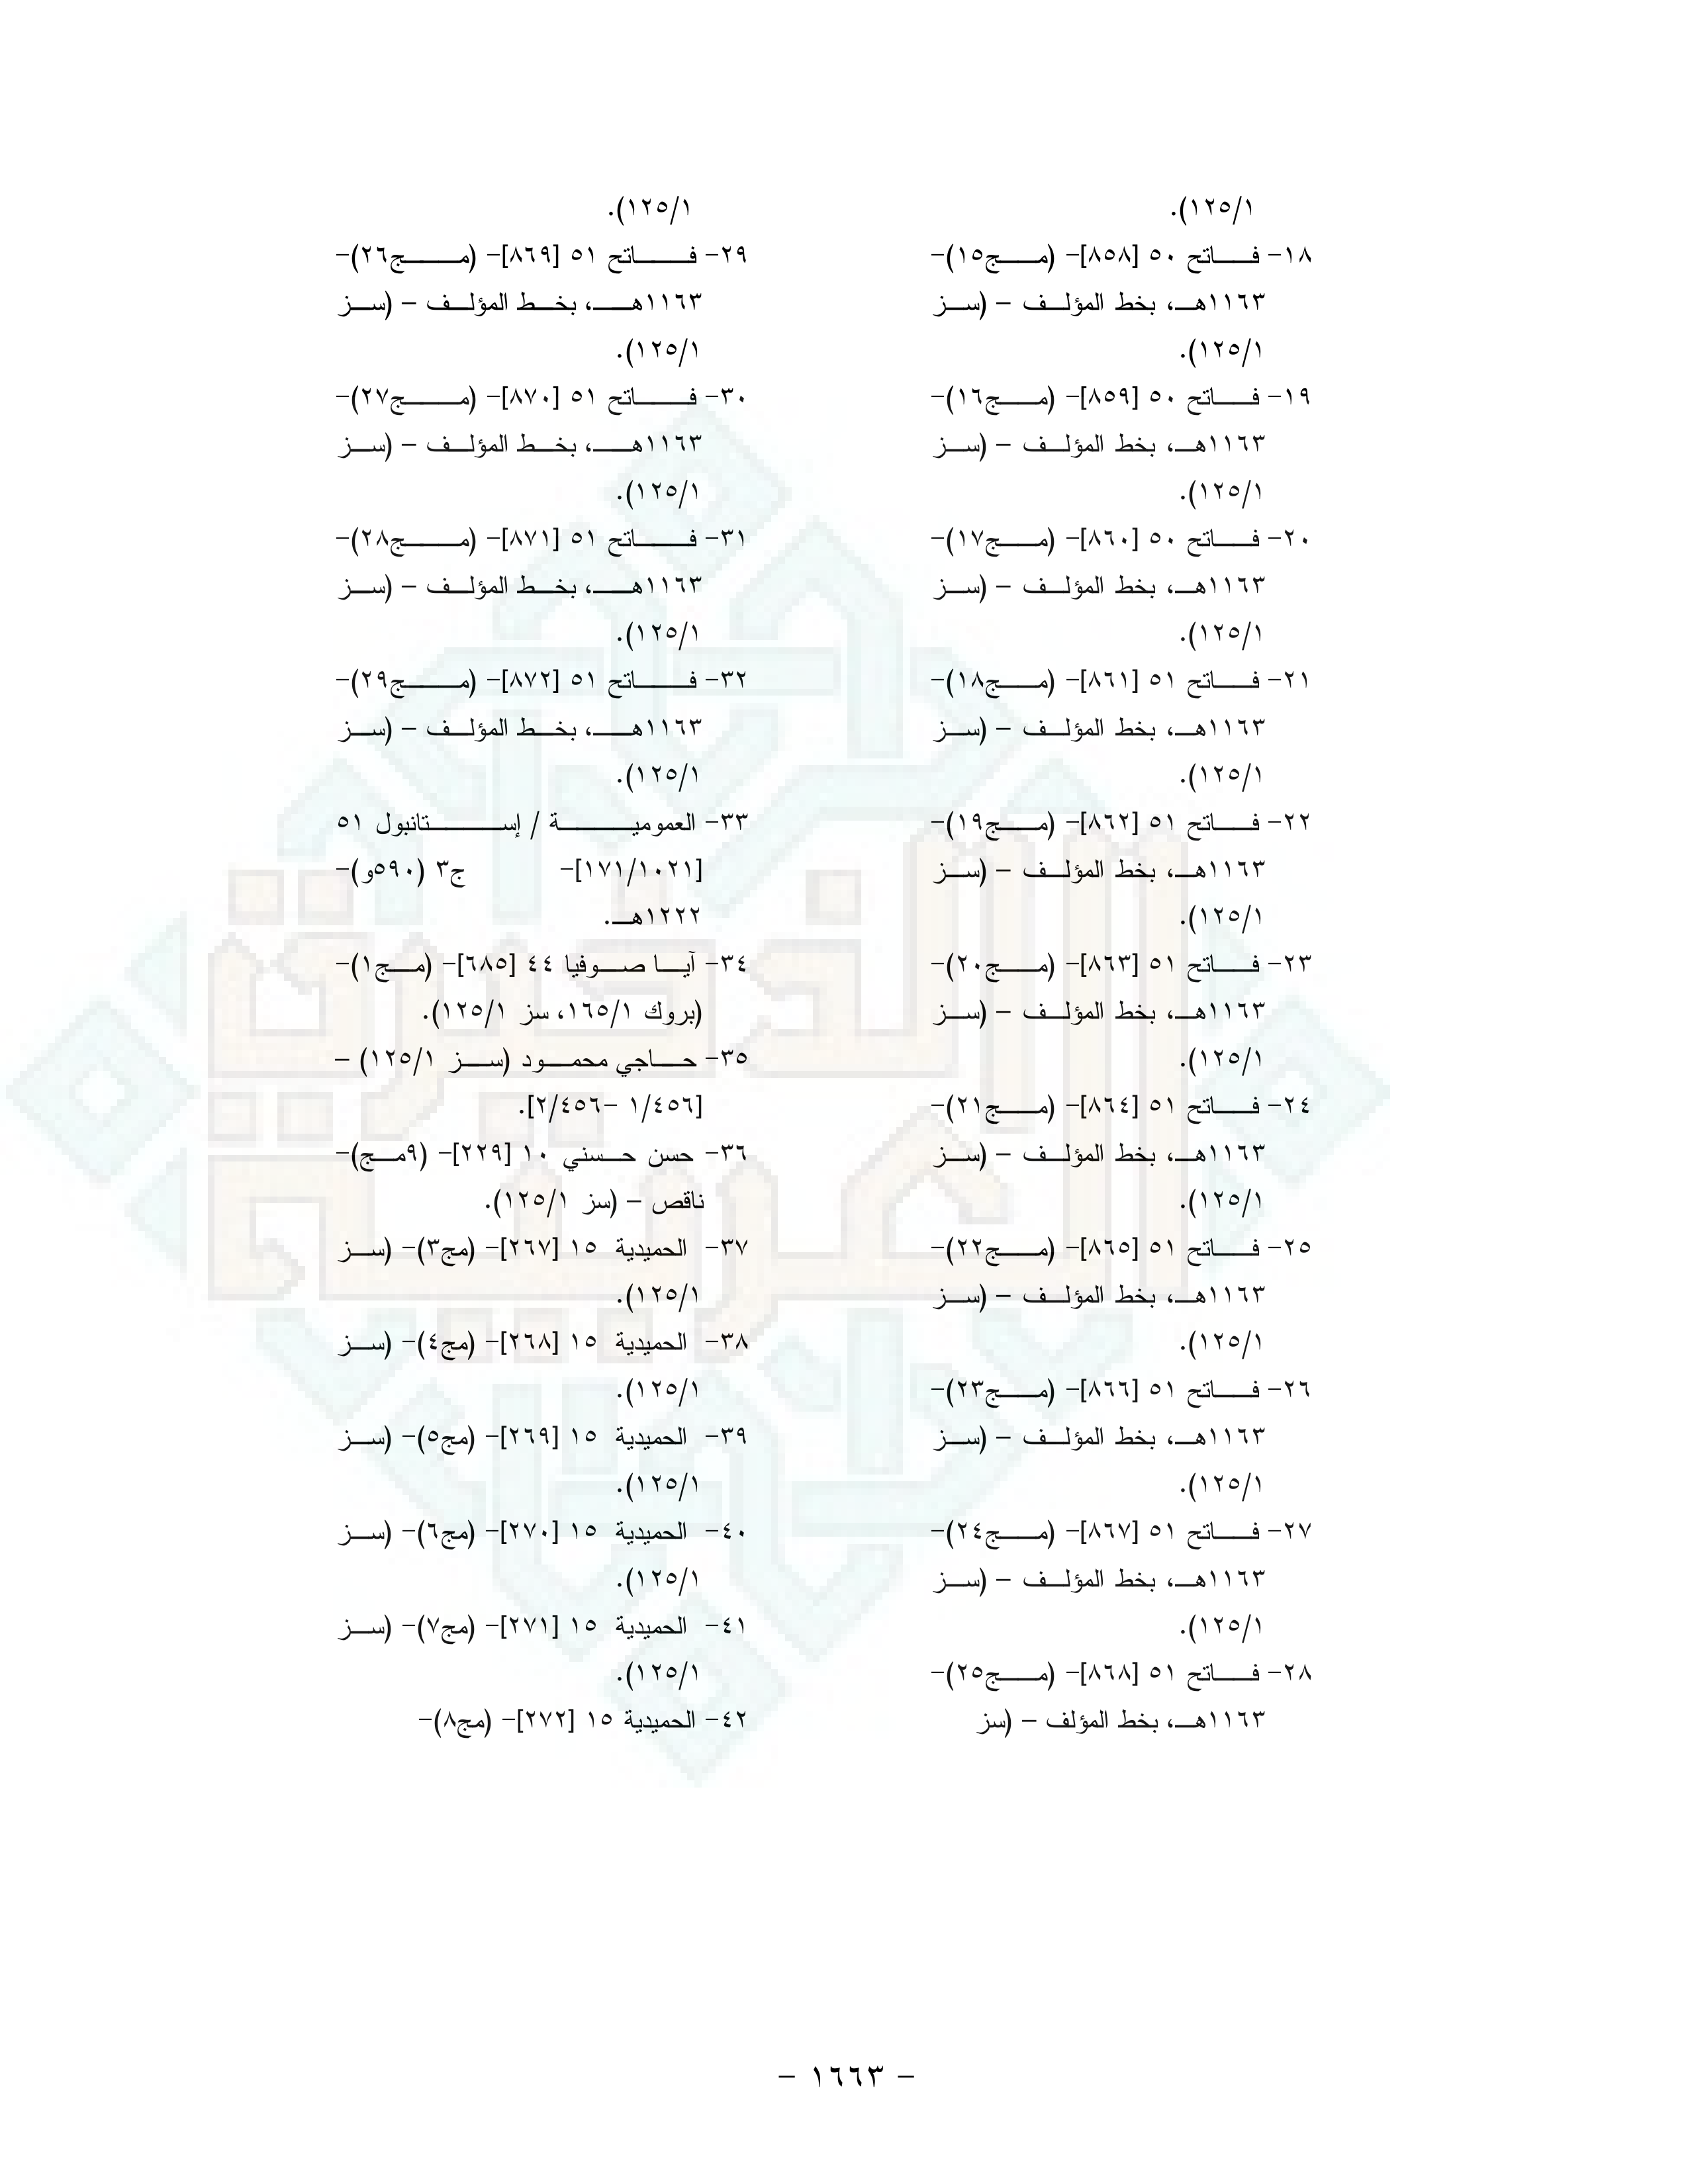 ١٢٥/١).
١٨- فاتح ٥٠ [٨٥٨]- (مج١٥)-
١١٦٣هـ، بخط المؤلف – (سز
١٢٥/١).
١٩- فاتح ٥٠ [٨٥٩]- (مج١٦)-
١١٦٣هـ، بخط المؤلف – (سز
١٢٥/١).
٢٠- فاتح ٥٠ [٨٦٠]- (مج١٧)-
١١٦٣هـ، بخط المؤلف – (سز
١٢٥/١).
٢١- فاتح ٥١ [٨٦١]- (مج١٨)-
١١٦٣هـ، بخط المؤلف – (سز
١٢٥/١).
٢٢- فاتح ٥١ [٨٦٢]- (مج١٩)-
١١٦٣هـ، بخط المؤلف – (سز
١٢٥/١).
٢٣- فاتح ٥١ [٨٦٣]- (مج٢٠)-
١١٦٣هـ، بخط المؤلف – (سز
١٢٥/١).
٢٤- فاتح ٥١ [٨٦٤]- (مج٢١)-
١١٦٣هـ، بخط المؤلف – (سز
١٢٥/١).
٢٥- فاتح ٥١ [٨٦٥]- (مج٢٢)-
١١٦٣هـ، بخط المؤلف – (سز
١٢٥/١).
٢٦- فاتح ٥١ [٨٦٦]- (مج٢٣)-
١١٦٣هـ، بخط المؤلف – (سز
١٢٥/١).
٢٧- فاتح ٥١ [٨٦٧]- (مج٢٤)-
١١٦٣هـ، بخط المؤلف – (سز
١٢٥/١).
٢٨- فاتح ٥١ [٨٦٨]- (مج٢٥)-
١١٦٣هـ، بخط المؤلف – (سز
١٢٥/١).
٢٩- فاتح ٥١ [٨٦٩]- (مج٢٦)-
١١٦٣هـ، بخط المؤلف – (سز
١٢٥/١).
٣٠- فاتح ٥١ [٨٧٠]- (مج٢٧)-
١١٦٣هـ، بخط المؤلف – (سز
١٢٥/١).
٣١- فاتح ٥١ [٨٧١]- (مج٢٨)-
١١٦٣هـ، بخط المؤلف – (سز
١٢٥/١).
٣٢- فاتح ٥١ [٨٧٢]- (مج٢٩)-
١١٦٣هـ، بخط المؤلف – (سز
١٢٥/١).
٣٣- العمومية / إستانبول ٥١
[١٧١/١٠٢١]- ج٣ (٥٩٠و)-
١٢٢٢هـ.
٣٤- آيا صوفيا ٤٤ [٦٨٥]- (مج١)-
(بروك ١٦٥/١، سز ١٢٥/١).
٣٥- حاجي محمود (سز ١٢٥/١) –
[١/٤٥٦ -٢/٤٥٦].
٣٦- حسن حسني ١٠ [٢٢٩]- (٩مج)-
ناقص – (سز ١٢٥/١).
٣٧- الحميدية ١٥ [٢٦٧]- (مج٣)- (سز
١٢٥/١).
٣٨- الحميدية ١٥ [٢٦٨]- (مج٤)- (سز
١٢٥/١).
٣٩- الحميدية ١٥ [٢٦٩]- (مج٥)- (سز
١٢٥/١).
٤٠- الحميدية ١٥ [٢٧٠]- (مج٦)- (سز
١٢٥/١).
٤١- الحميدية ١٥ [٢٧١]- (مج٧)- (سز
١٢٥/١).
٤٢- الحميدية ١٥ [٢٧٢]- (مج٨)-
الذخيرة
العربية
- ١٦٦٣ -